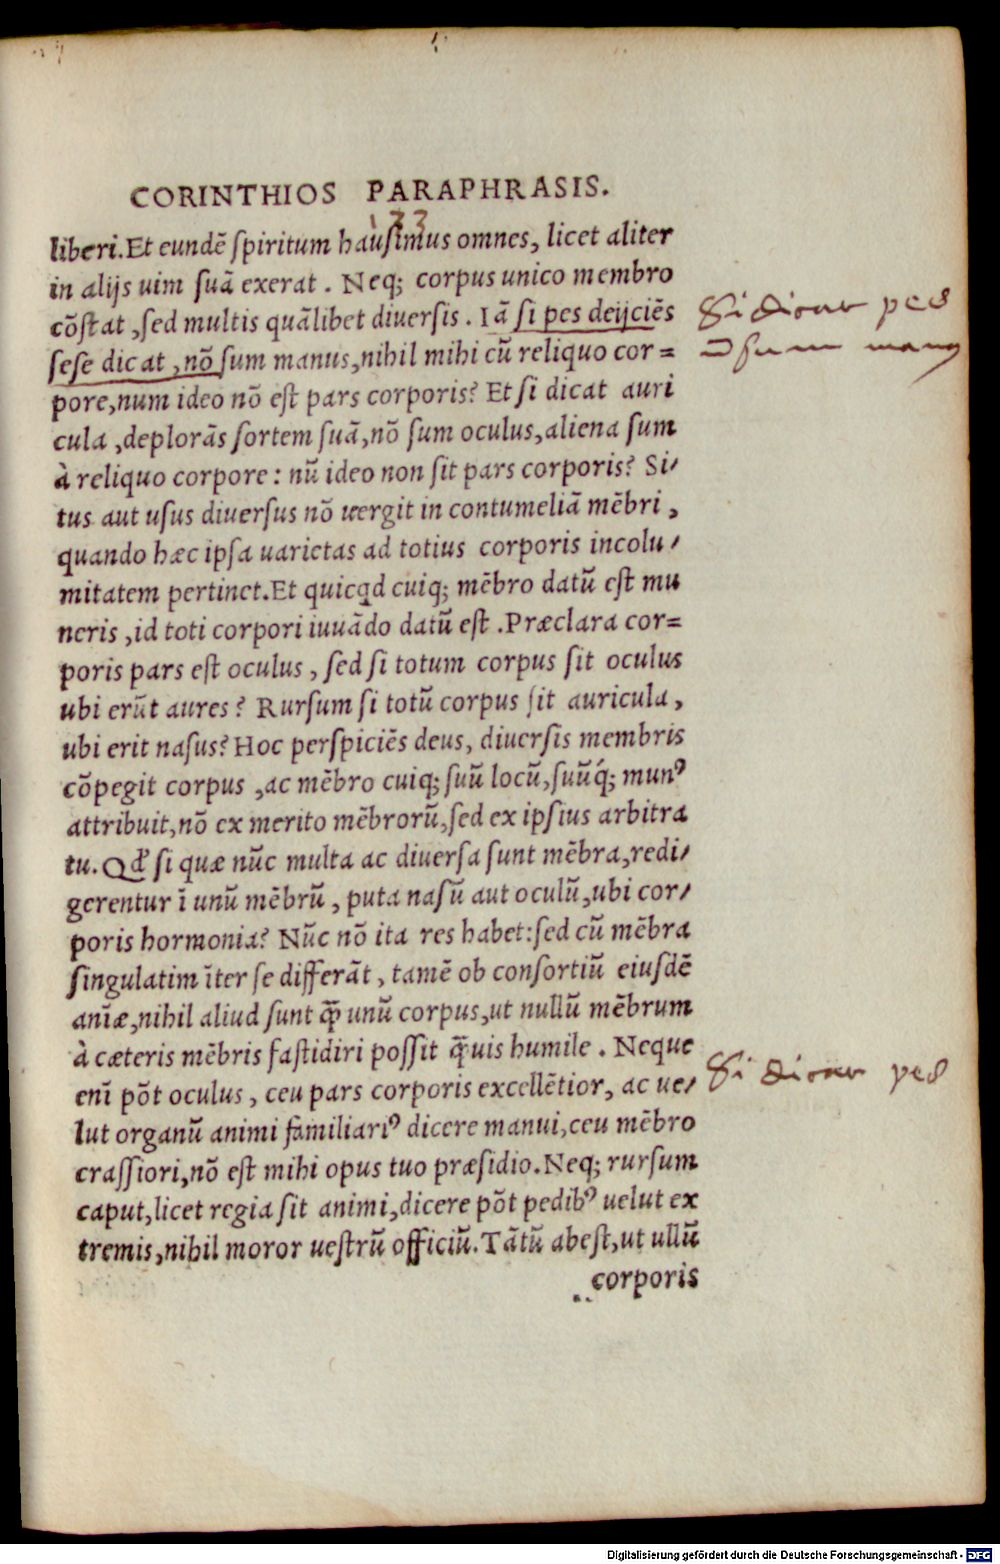 CORINTHIOS PARAPHRASIS.
133
liberi. Et eundē ſpiritum hauſimus omnes, licet aliter
in alijs uim ſuā exerat. Neq; corpus unico membro
cōſtat, ſed multis quālibet diuerſis. Iā ſi pes deijciēs
ſeſe dicat, nō ſum manus, nihil mihi cū reliquo cor=
pore, num ideo nō eſt pars corporis? Et ſi dicat auri
cula, deplorās ſortem ſuā, nō ſum oculus, aliena ſum
à reliquo corpore: nū ideo non ſit pars corporis? Si/
tus aut uſus diuerſus nō uergit in contumeliā mēbri,
quando hæc ipſa uarietas ad totius corporis incolu/
mitatem pertinet. Et quicqd cuiq; mēbro datū eſt mu
neris, id toti corpori iuuādo datū eſt. Præclara cor=
poris pars eſt oculus, ſed ſi totum corpus ſit oculus
ubi erūt aures? Rurſum ſi totū corpus ſit auricula,
ubi erit naſus? Hoc perſpiciēs deus, diuerſis membris
cōpegit corpus, ac mēbro cuiq; ſuū locū, ſuūq́; munꝰ
attribuit, nō ex merito mēbrorū, ſed ex ipſius arbitra
tu. Qd' ſi quæ nūc multa ac diuerſa ſunt mēbra, redi/
gerentur ī unū mēbrū, puta naſū aut oculū, ubi cor/
poris hormonia? Nūc nō ita res habet: ſed cū mēbra
ſingulatim īter ſe differāt, tamē ob conſortiū eiuſdē
anīæ, nihil aliud ſunt q̄ꝫ unū corpus, ut nullū mēbrum
à cæteris mēbris faſtidiri poſſit q̄ꝫuis humile. Neque
enī pōt oculus, ceu pars corporis excellētior, ac ue/
lut organū animi familiariꝰ dicere manui, ceu mēbro
craſſiori, nō eſt mihi opus tuo præſidio. Neq; rurſum
caput, licet regia ſit animi, dicere pōt pedibꝰ uelut ex
tremis, nihil moror ueſtrū officiū. Tātū abeſt, ut ullū
corporis
Si dicat pes
sum manꝰ
Si dicat pes
Digitalisierung gefördert durch die Deutsche Forschungsgemeinschaft - DFG